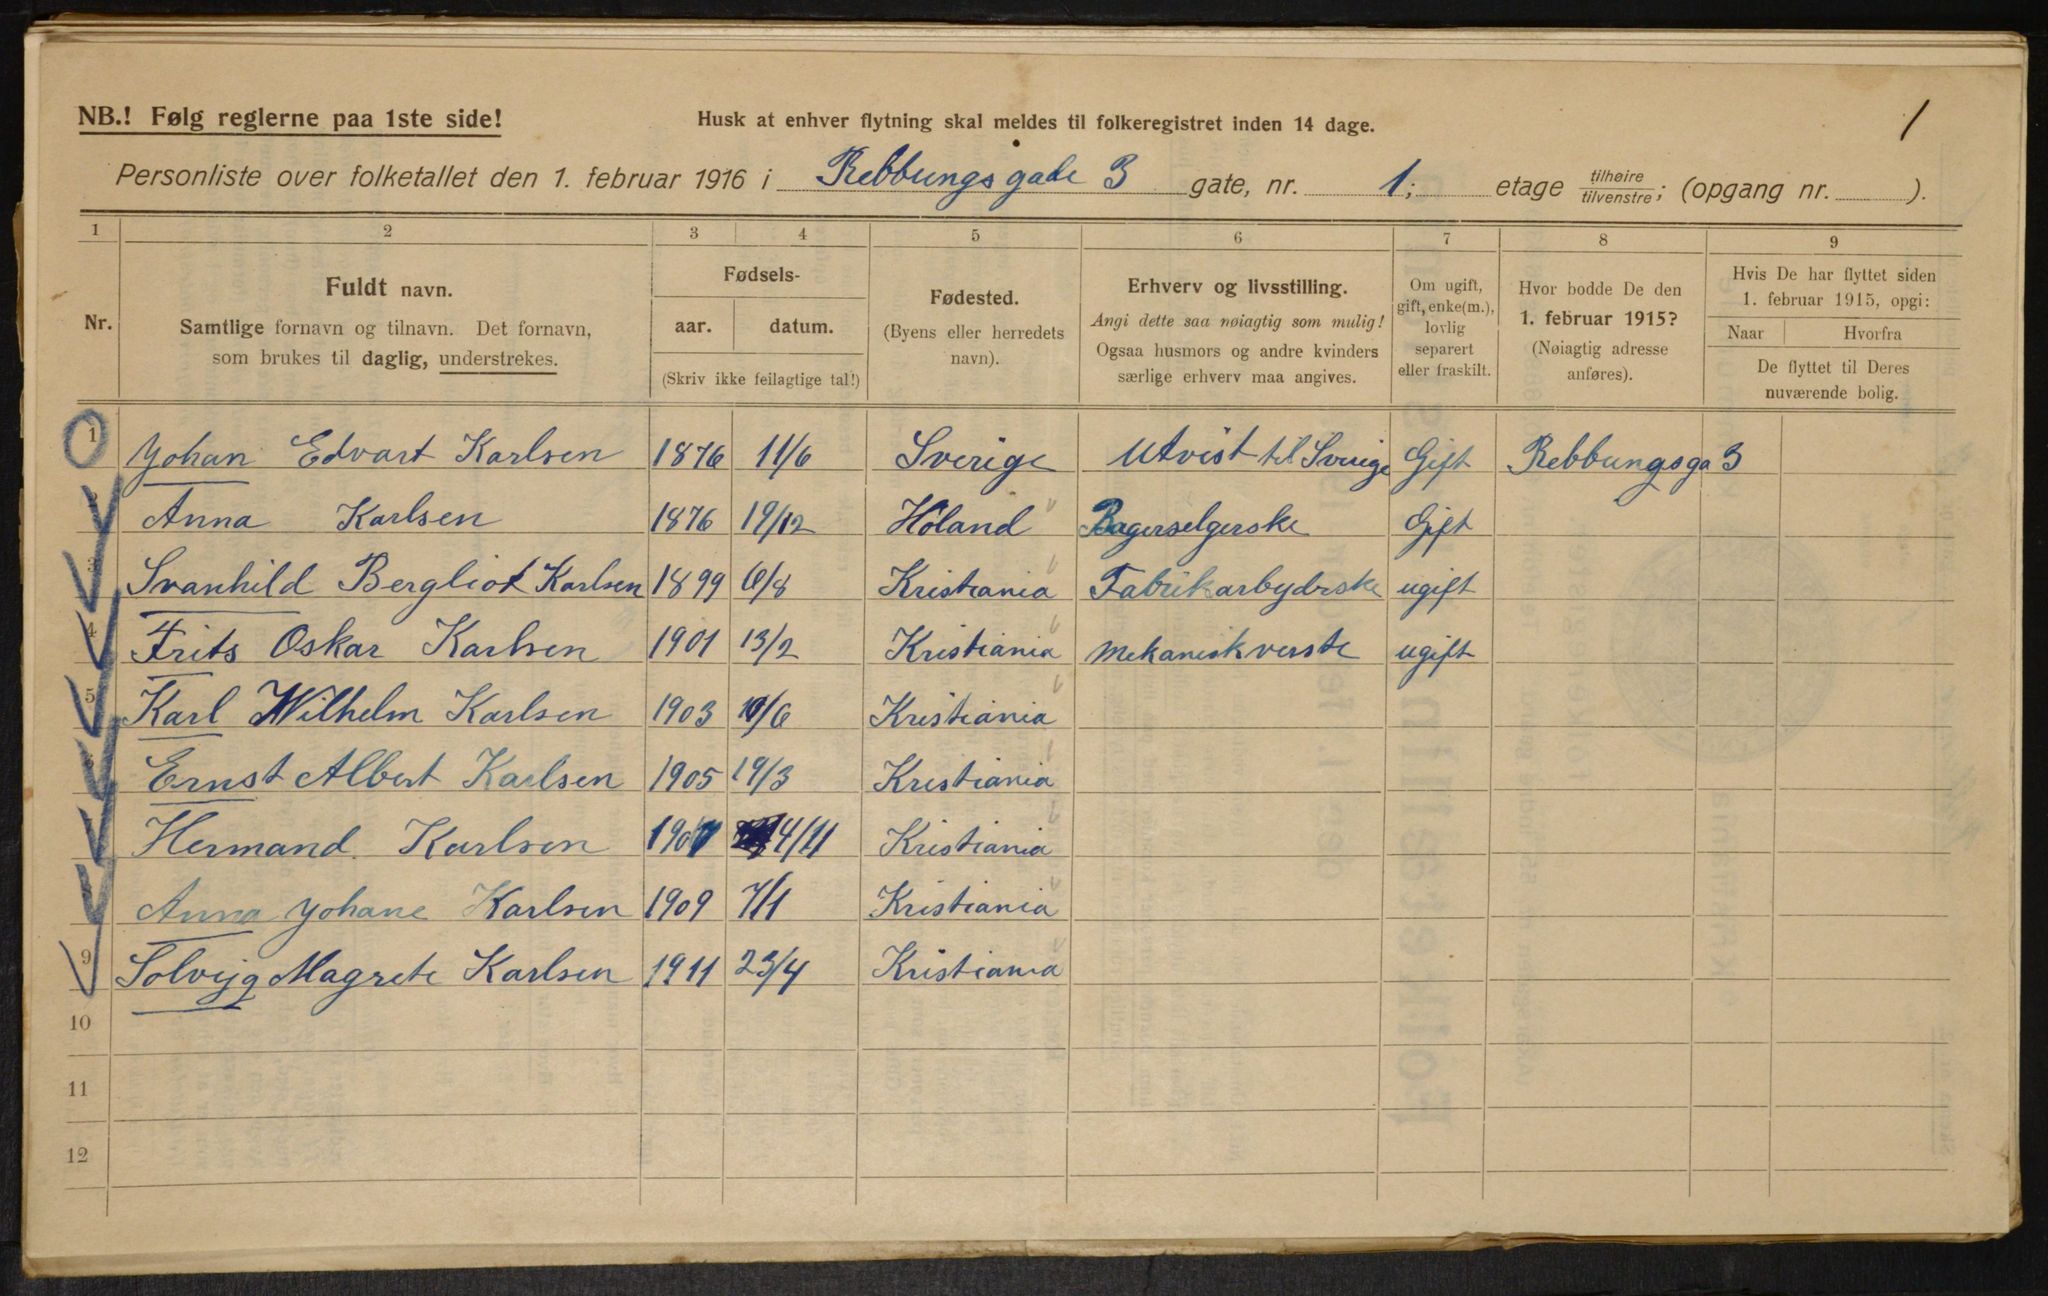 1
NB.! Følg reglerne paa 1ste side!
Husk at enhver flytning skal meldes til folkeregistret inden 14 dage.
Personliste over folketallet den 1. februar 1916 i Rebbungsgade 3 gate, nr. 1; etage tilhøire / tilvenstre; (opgang nr. ).
1 2 3 4 5 6 7 8 9
Nr.
Fuldt navn.
Samtlige fornavn og tilnavn. Det fornavn,
som brukes til daglig, understrekes.
Fødsels-
aar. datum.
(Skriv ikke feilagtige tal!)
Fødested.
(Byens eller herredets
navn).
Erhverv og livsstilling.
Angi dette saa nøiagtig som mulig!
Ogsaa husmors og andre kvinders
særlige erhverv maa angives.
Om ugift,
gift, enke(m.),
lovlig
separert
eller fraskilt.
Hvor bodde De den
1. februar 1915?
(Nøiagtig adresse
anføres).
Hvis De har flyttet siden
1. februar 1915, opgi:
Naar Hvorfra
De flyttet til Deres
nuværende bolig.
1 Yohan Edvart Karlsen 1876 11/6 Sverige Utvist til Sverige Gift Rebbungsga 3
2 Anna Karlsen 1876 19/12 Höland Bagerselgerske Gift
3 Svanhild Bergliot Karlsen 1899 6/8 Kristiania Fabrikarbyderske ugift
4 Frits Oskar Karlsen 1901 13/2 Kristiania Mekanisk verste ugift
5 Karl Wilhelm Karlsen 1903 10/6 Kristiania
6 Ernst Albert Karlsen 1905 19/3 Kristiania
Hermand Karlsen 1907 4/11 Kristiania
Anna Yohane Karlsen 1909 7/1 Kristiania
9 Solvejg Magrete Karlsen 1911 23/4 Kristiania
10
11
12